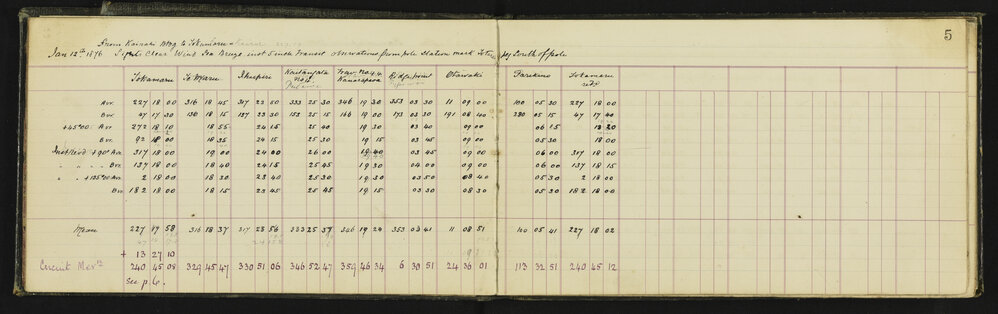 5
From Kairahi Bdy to Tokamaru
Jan 12th 1876 Light Clear Wind Sea Breeze inst 5 inch Transit observations from pole Station mark South of pole
Tokamaru Te Maru Ihupire No. 4.4. Ridge point Otawaki Parekino Tokamaru
Avr 227 18 00 316 18 45 317 23 50 333 25 30 346 19 30 353 03 30 11 09 00 100 05 30 227 18 00
Bvr 47 17 30 136 18 15 137 23 30 153 25 15 166 19 00 173 03 30 191 08 40 280 05 15 47 17 40
+45°00 Avr 272 18 10 18 55 24 15 25 40 19 30 03 40 09 00 06 15 18 20
Bvr 92 18 00 18 35 24 15 25 30 19 15 03 45 09 00 05 30 18 00
+90 Avr 317 18 00 19 00 24 00 26 00 19 40 03 45 09 00 06 00 317 18 00
" " Bvr 137 18 00 18 40 24 15 25 45 19 30 04 00 09 00 06 00 137 18 15
" " +135°00 Avr 2 18 00 18 30 23 40 25 30 19 30 03 50 08 40 05 30 2 18 00
Bvr 182 18 00 18 15 23 45 25 45 19 15 03 30 08 30 05 30 182 18 00
Mean 227 17 58 316 18 37 317 23 56 333 25 37 346 19 24 353 03 41 11 08 51 100 05 41 227 18 02
+ 13 27 10
Circuit Mern 240 45 08 329 45 47 330 51 06 346 52 47 359 46 34 6 30 51 24 36 01 113 32 51 240 45 12
See p. 6.